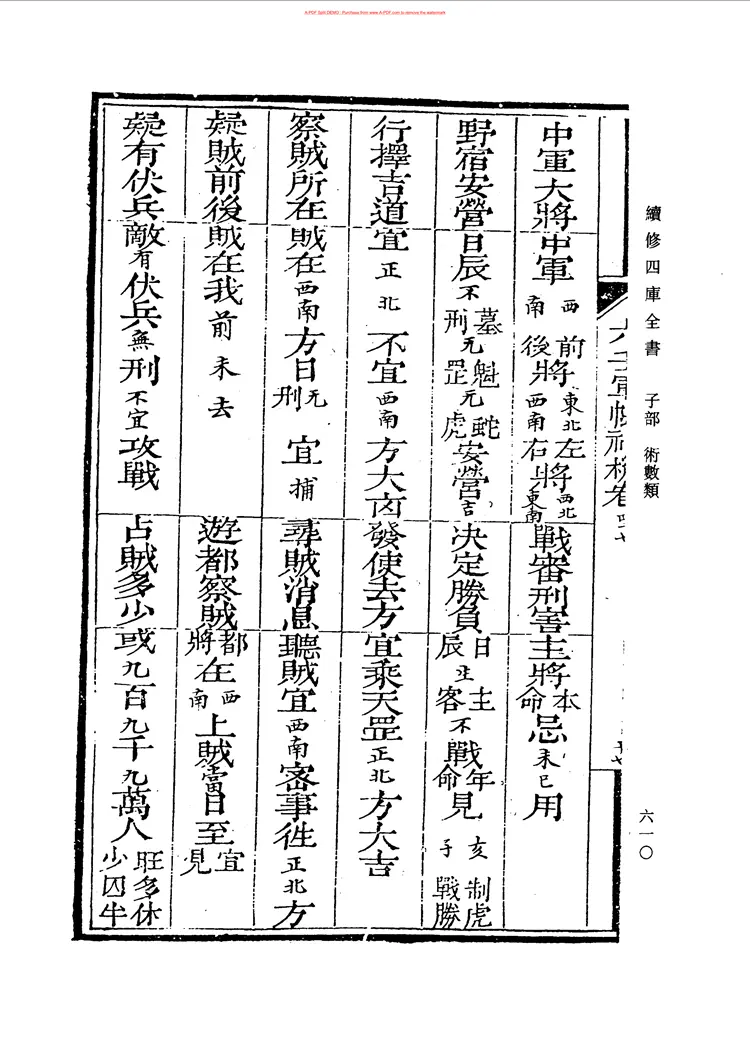 A-PDF Split DEMO : Purchase from www.A-PDF.com to remove the watermark
續修四庫全書 子部 術數類
六一〇
中軍大將中軍西南前將東北後將西南左將西北右將東南戰審刑害主將本命忌未巳用
野宿安營日辰不墓刑无魁罡无蛇虎安營吉決定勝負日辰主客不戰年命見亥子制虎戰勝
行擇吉道宜正北不宜西南方大凶發使去方宜乘天罡正北方大吉
察賊所在賊在西南方日无刑宜捕尋賊消息聽賊宜西南審事往正北方
疑賊前後賊在我前未去遊都察賊都將在西南上賊當日至宜見
疑有伏兵敵有伏兵無刑不宜攻戰占賊多少或九百九千九萬人旺多休少囚半